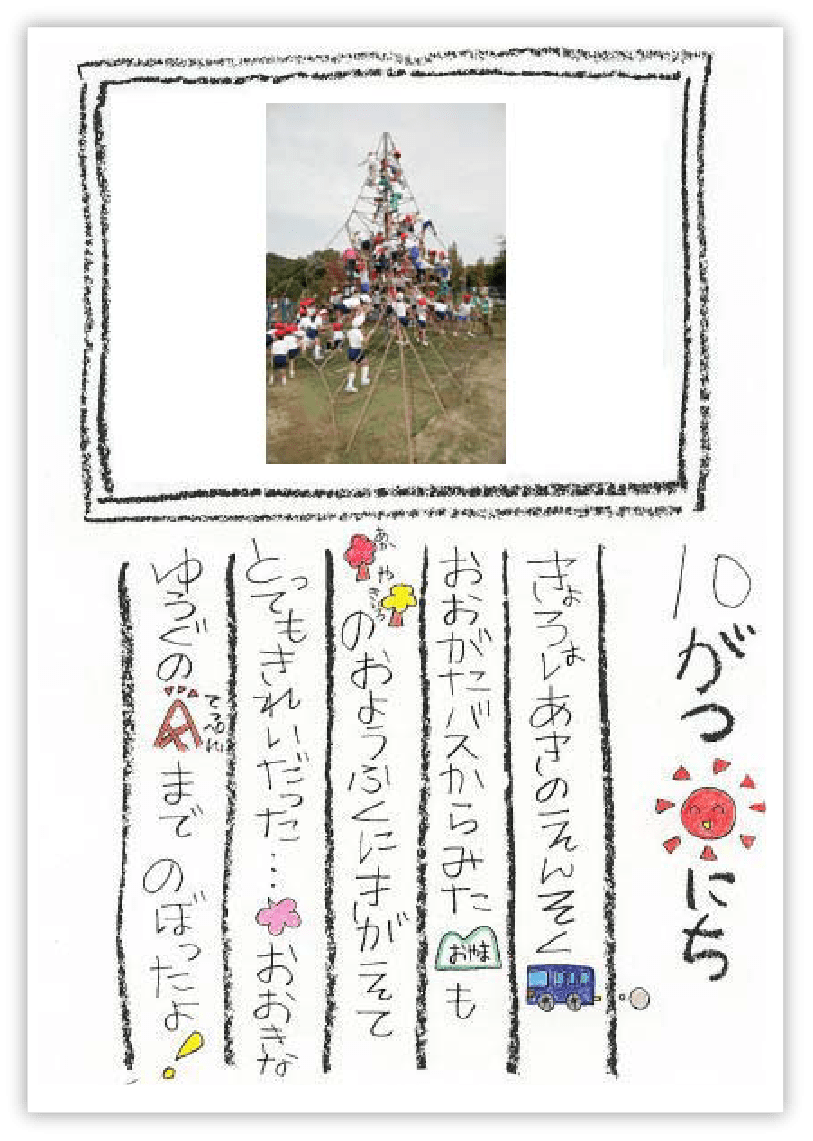 10がつにち
きょうはあきのえんそく
おおがたバスからみたおやまも
あかやきいろのおようふくにきがえて
とってもきれいだった…おおきな
ゆうぐのてっぺんまでのぼったよ!